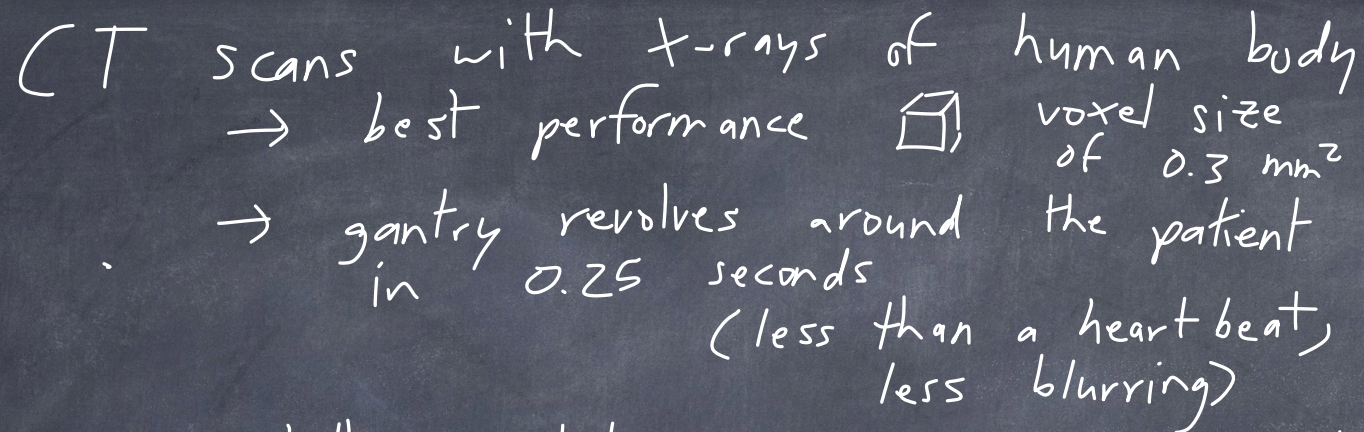 CT scans with X-rays of human body
→ best performance voxel size
of 0.3 mm²
→ gantry revolves around the patient
in 0.25 seconds
(less than a heartbeat,
less blurring)